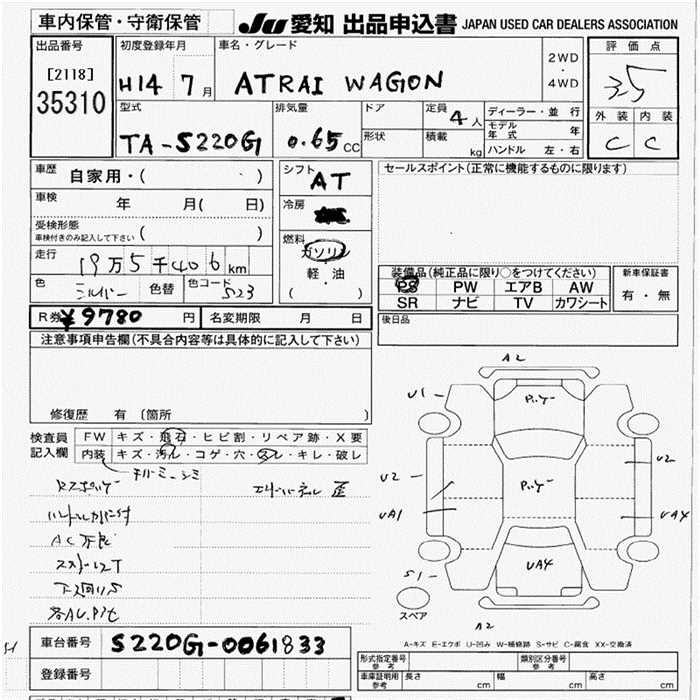 車内保管・守衛保管
JU 愛知 出品申込書 JAPAN USED CAR DEALERS ASSOCIATION
出品番号
[2118]
35310
初度登録年月
H14 7月
車名・グレード
ATRAI WAGON
2WD
・
4WD
評価点
3.5
外装 内装
C C
型式
TA-S220G
排気量
0.65 CC
ドア
形状
定員
4人
積載
kg
ディーラー・並行
モデル年式 年
ハンドル 左・右
車歴
自家用・( )
車検
年 月( 日)
受検形態
車検付きのみ記入して下さい
( )
走行
19万5千406km
色
シルバー
色替
色コード
S23
シフト
AT
冷房
燃料
ガソリン
・
軽・油
( )
セールスポイント(正常に機能するものに限ります)
装備品(純正品に限り○をつけてください)
PS PW エアB AW
SR ナビ TV カワシート
新車保証書
有・無
R券 ¥9780 円
名変期限 月 日
後日品
注意事項申告欄(不具合内容等は具体的に記入して下さい)
修復歴 有 (箇所 )
検査員
記入欄
FW キズ・飛石・ヒビ割・リペア跡・X要
内装 キズ・汚レ・コゲ・穴・スレ・キレ・破レ
AC不良
A2
U1
U2
UA1
S1
U2
UA4
UA4
A2
スペア
A-キズ E-エクボ U-凹み W-補修跡 S-サビ C-腐食 XX-交換済
S1
車台番号
S220G-0061833
登録番号
形式指定番号
参考
類別区分番号
参考
車庫証明用
参考
長さ cm
幅 cm
高さ cm